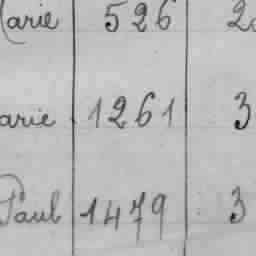 Marie 526 2
Marie 1261 3
Paul 1479 3